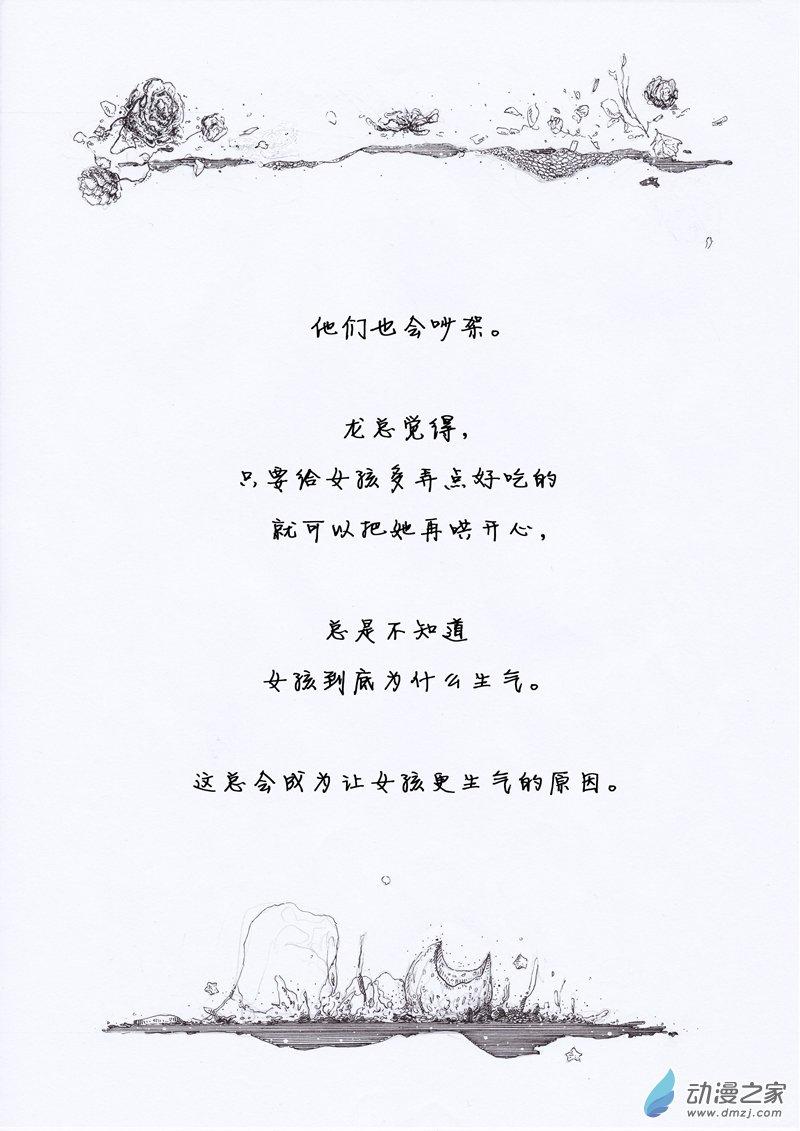 他们也会吵架。
龙总觉得，
只要给女孩多弄点好吃的
就可以把她再哄开心，
总是不知道
女孩到底为什么生气。
这总会成为让女孩更生气的原因。
动漫之家
www.dmzj.com